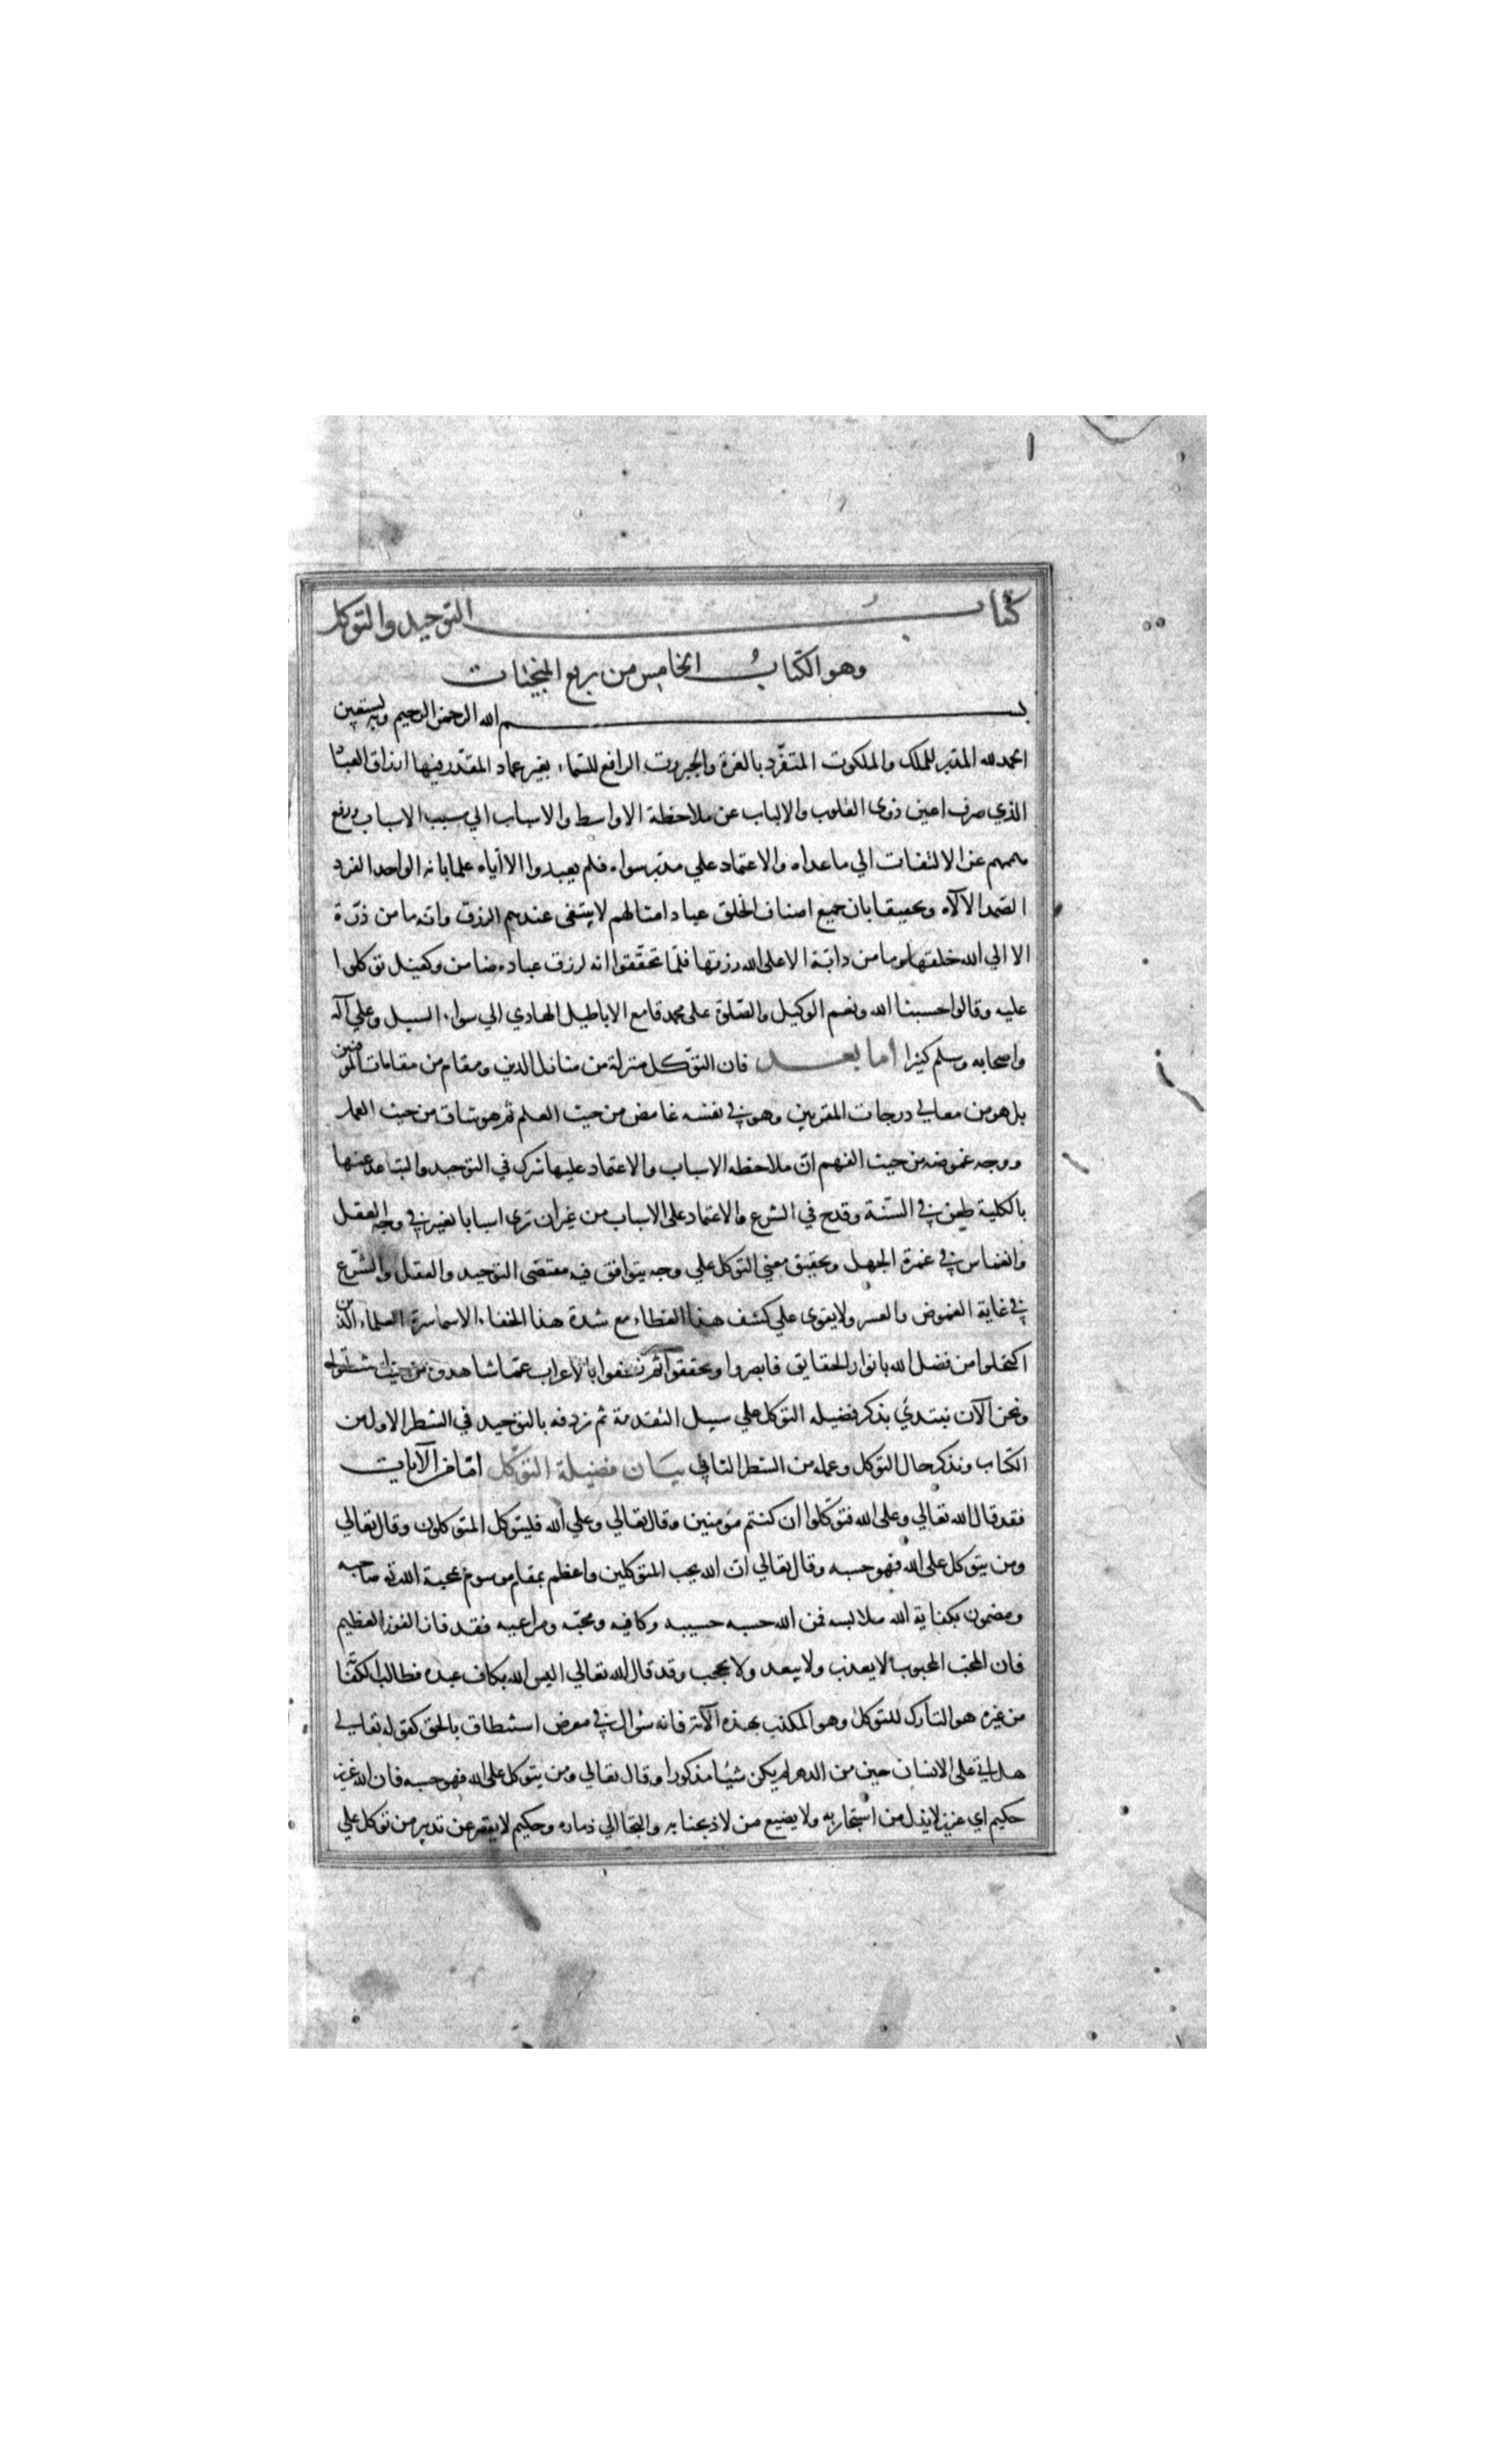 ١
كتاب التوحيد والتوكل
وهو الكتاب الخامس من ربع المنجيات
بسم الله الرحمن الرحيم وبه نستعين
الحمد لله المدبر للملك والملكوت المتفرد بالعزة والجبروت الرافع للسماء بغير عماد المقدر فيها ارزاق العباد
الذي صرف اعين ذوى القلوب والالباب عن ملاحظة الاواسط والاسباب الي سبب الاسباب ورفع
هممهم عن الالتفات الي ما عداه والاعتماد علي مدبر سواه فلم يعبدوا الا اياه علما بانه الواحد الفرد
الصمد الالاه وتحقيقا بان جميع اصناف الخلق عباد امثالهم لا يبتغى عندهم الرزق وانه ما من ذرة
الا الي الله خلقتها وما من دابة الا على الله رزقها فلما تحققوا انه لرزق عباده ضامن وكفيل توكلوا
عليه وقالوا حسبنا الله ونعم الوكيل والصلوة على محمد قامع الاباطيل الهادي الي سواء السبيل وعلي آله
واصحابه وسلم كثيرا اما بعد فان التوكل منزلة من منازل الدين ومقام من مقامات المومنين
بل هو من معالي درجات المقربين وهو في نفسه غامض من حيث العلم ثم هو شاق من حيث العمل
ووجه غموضه من حيث الفهم ان ملاحظه الاسباب والاعتماد عليها شرك في التوحيد والتباعد عنها
بالكلية طعن في السنة وقدح في الشرع والاعتماد على الاسباب من غير ان ترى اسبابا تغير في وجه العقل
وانغماس في غمرة الجهل وتحقيق معني التوكل علي وجه يتوافق فيه مقتضى التوحيد والعقل والشرع
في غاية الغموض والعسر ولا يقوى علي كشف هذا الغطاء مع شدة هذا الخفاء الا سماسرة العلماء الذين
اكتحلوا من فضل الله بانوار الحقايق فابصروا وتحققوا ثم نطقوا بالاعراب عما شاهدوه من حيث استنطقوا
ونحن الآن نبتدي بذكر فضيله التوكل علي سبيل التقدمة ثم نردفه بالتوحيد في الشطر الاول من
الكتاب ونذكر حال التوكل وعمله من الشطر الثاني بيان فضيلة التوكل اما من الآيات
فقد قال الله تعالي وعلى الله فتوكلوا ان كنتم مؤمنين وقال تعالي وعلي الله فليتوكل المتوكلون وقال تعالي
ومن يتوكل على الله فهو حسبه وقال تعالي ان الله يحب المتوكلين واعظم بمقام موسوم بمحبة الله تع صاحبه
ومضمون بكفاية الله ملابسه فمن الله حسبه حسيبه وكافيه ومحبه ومراعيه فقد فاز الفوز العظيم
فان المحب المحبوب لا يعذب ولا يبعد ولا يحجب وقد قال الله تعالي اليس الله بكاف عبده فطالب الكفا
من غيره هو التارك للتوكل وهو المكذب بهذه الآية فانه سؤال في معرض استنطاق بالحق كقوله تعالي
هل اتي على الانسان حين من الدهر لم يكن شيئا مذكورا وقال تعالي ومن يتوكل على الله فهو حسبه فان الله عزيز
حكيم اي عزيز لا يذل من استجار به ولا يضيع من لاذ بجنابه والتجا الي ذماره وحكيم لا يقصر عن تدبير من توكل علي